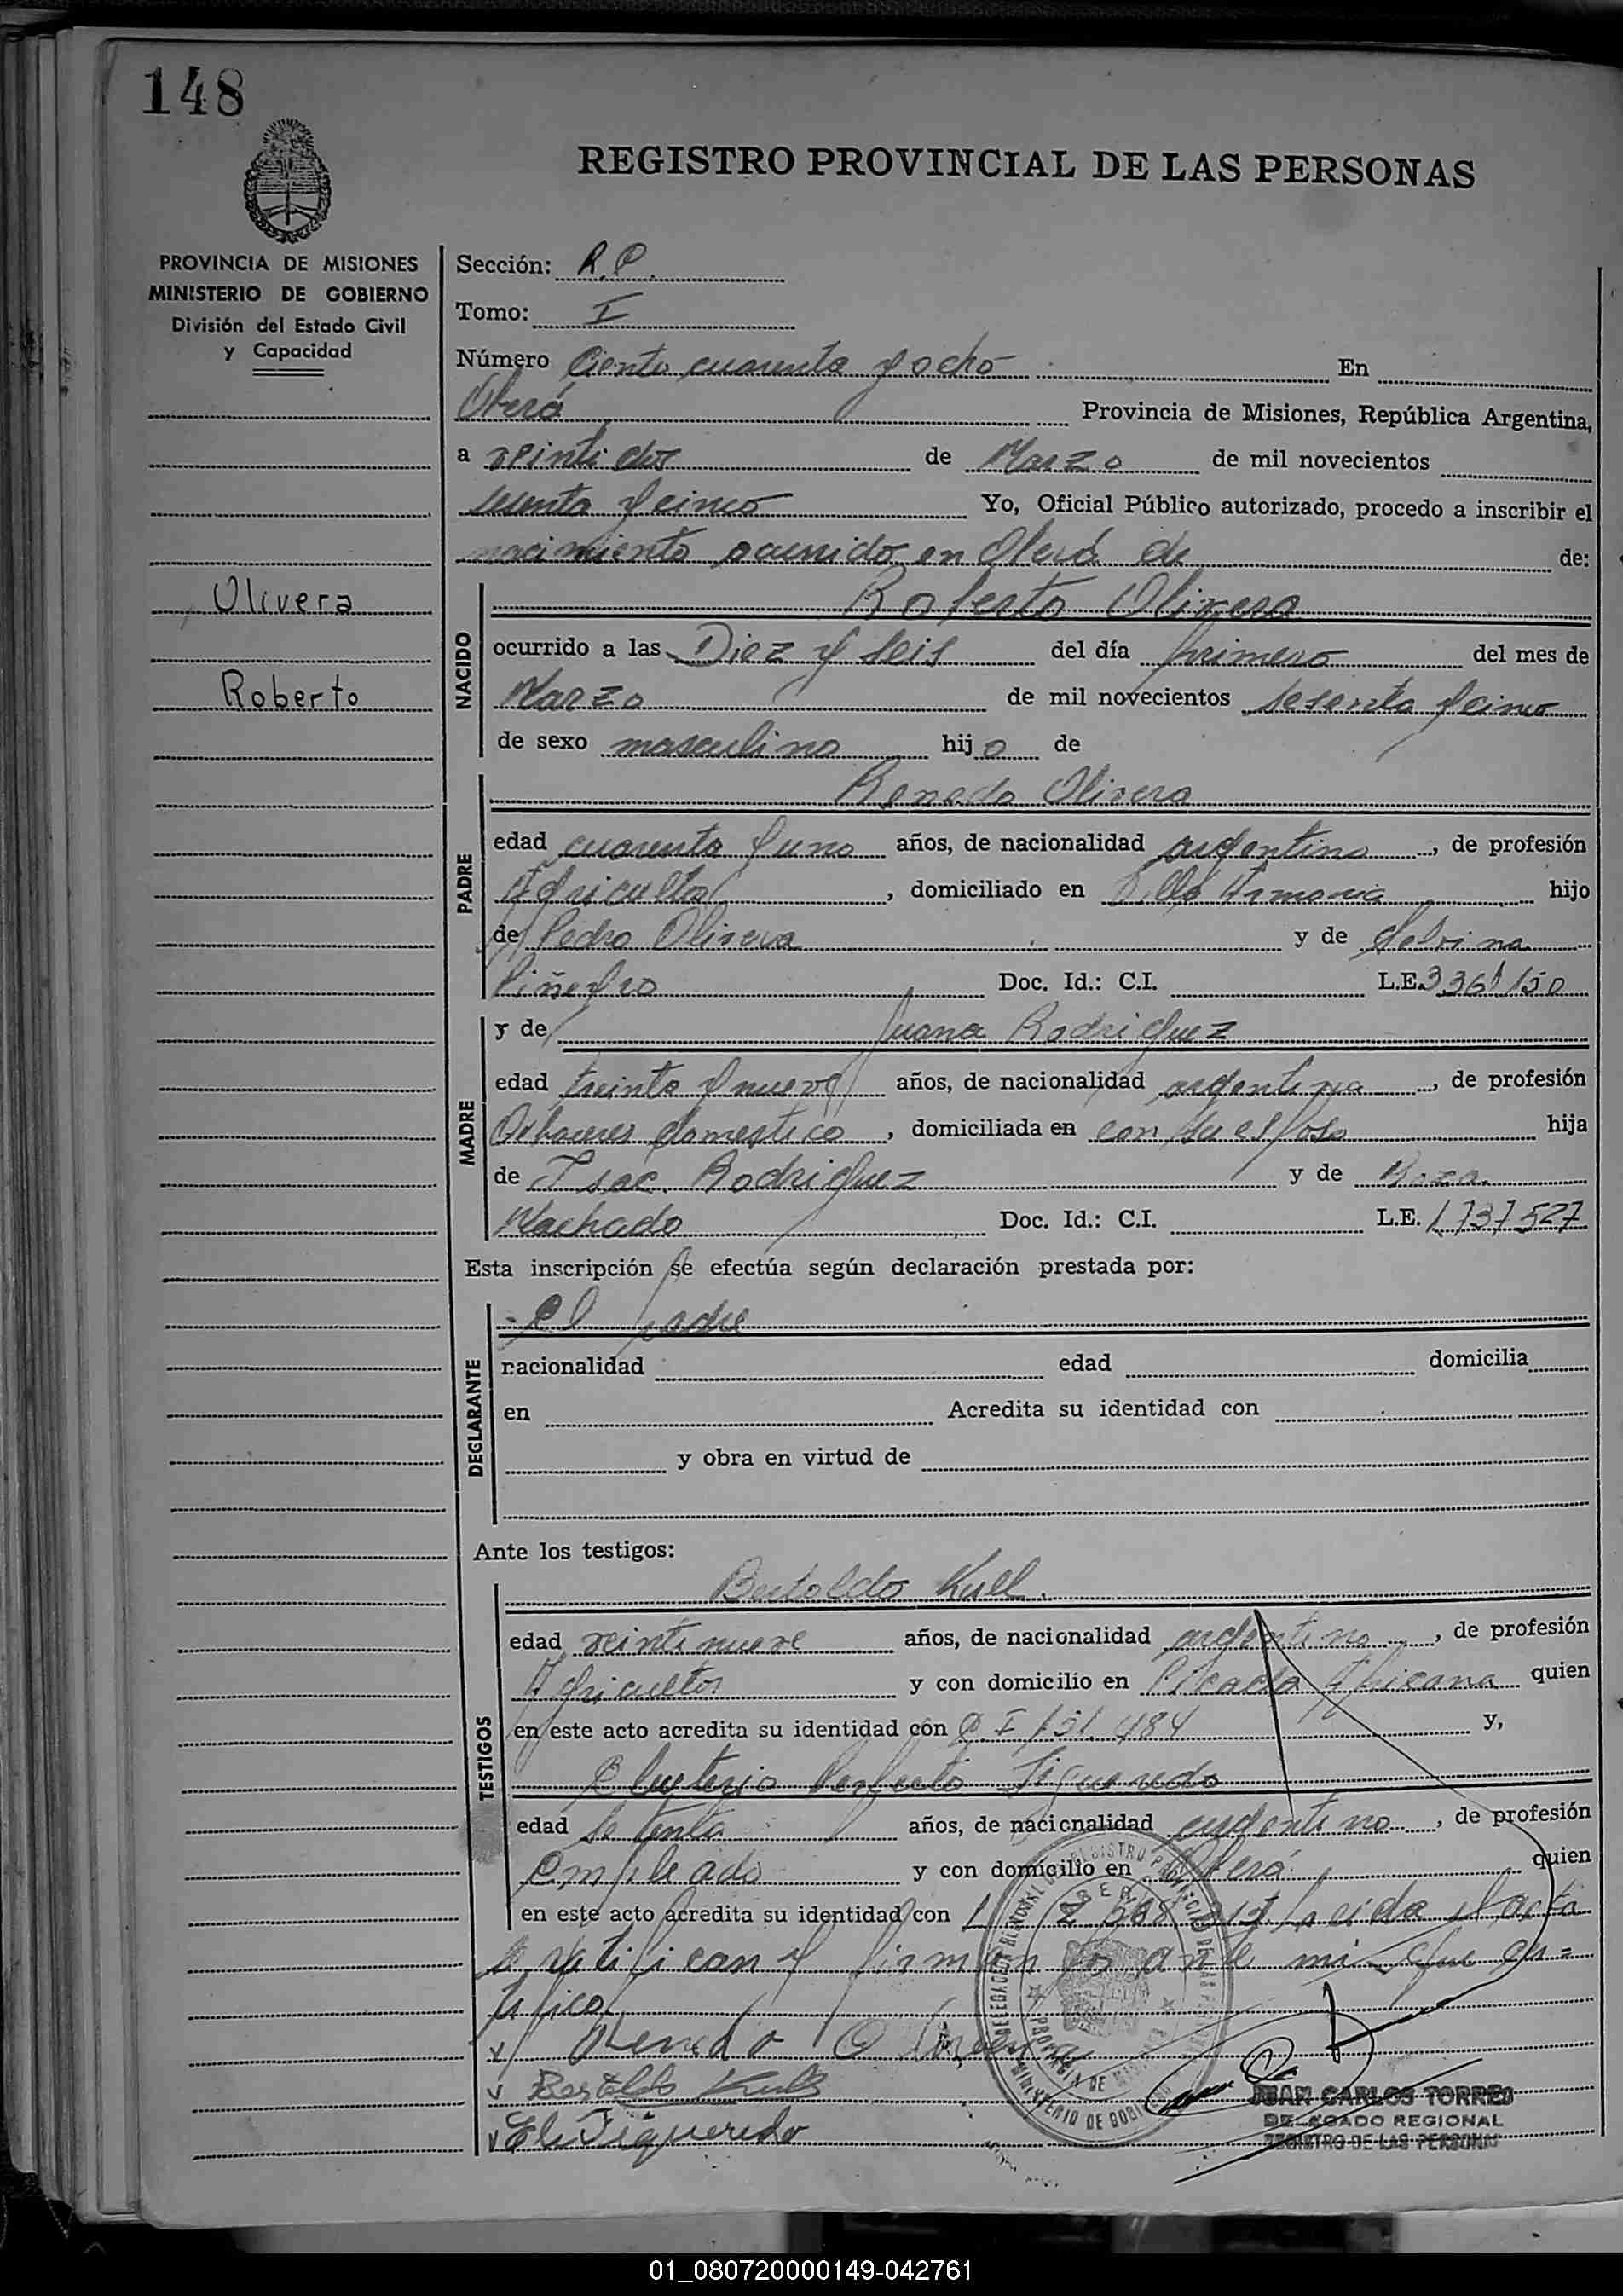 148
REGISTRO PROVINCIAL DE LAS PERSONAS
PROVINCIA DE MISIONES
MINISTERIO DE GOBIERNO
División del Estado Civil
y Capacidad
Olivera
Roberto
Sección: R.P.
Tomo: I
Número Ciento cuarenta y ocho En
Oberá Provincia de Misiones, República Argentina,
a veinti dos de Marzo de mil novecientos
sesenta y cinco Yo, Oficial Público autorizado, procedo a inscribir el
nacimiento ocurrido en Oberá de de:
NACIDO
Roberto Olivera
ocurrido a las Diez y seis del día primero del mes de
Marzo de mil novecientos sesenta y cinco
de sexo masculino hijo de
PADRE
Renedo Olivera
edad cuarenta y uno años, de nacionalidad argentino, de profesión
Agricultor, domiciliado en Villa Armonia hijo
de Pedro Olivera y de
Piñeyro Doc. Id.: C.I. L.E. 3361150
MADRE
y de Juana Rodriguez
edad treinta y nueve años, de nacionalidad argentina, de profesión
Quhaceres domestico, domiciliada en con su esposo hija
de Isac Rodriguez y de Roza
Machado Doc. Id.: C.I. L.E. 1737527
Esta inscripción se efectúa según declaración prestada por:
DECLARANTE
El padre
nacionalidad edad domicilia
en Acredita su identidad con
y obra en virtud de
Ante los testigos:
TESTIGOS
Bertoldo Kull.
edad veinti nueve años, de nacionalidad argentino, de profesión
Agricultor y con domicilio en Picada Africana quien
en este acto acredita su identidad con C.I 151.484 y,
Eleuterio Perfecto Figueredo
edad setenta años, de nacionalidad argentino, de profesión
Empleado y con domicilio en Oberá quien
en este acto acredita su identidad con Leida el acta
la ratifican y firman por ante mi que cer=
tifico
Renedo Olivera
Bertoldo Kull
El. Figueredo
JUAN CARLOS TORRES
DELEGADO REGIONAL
REGISTRO DE LAS PERSONAS
01_080720000149-042761